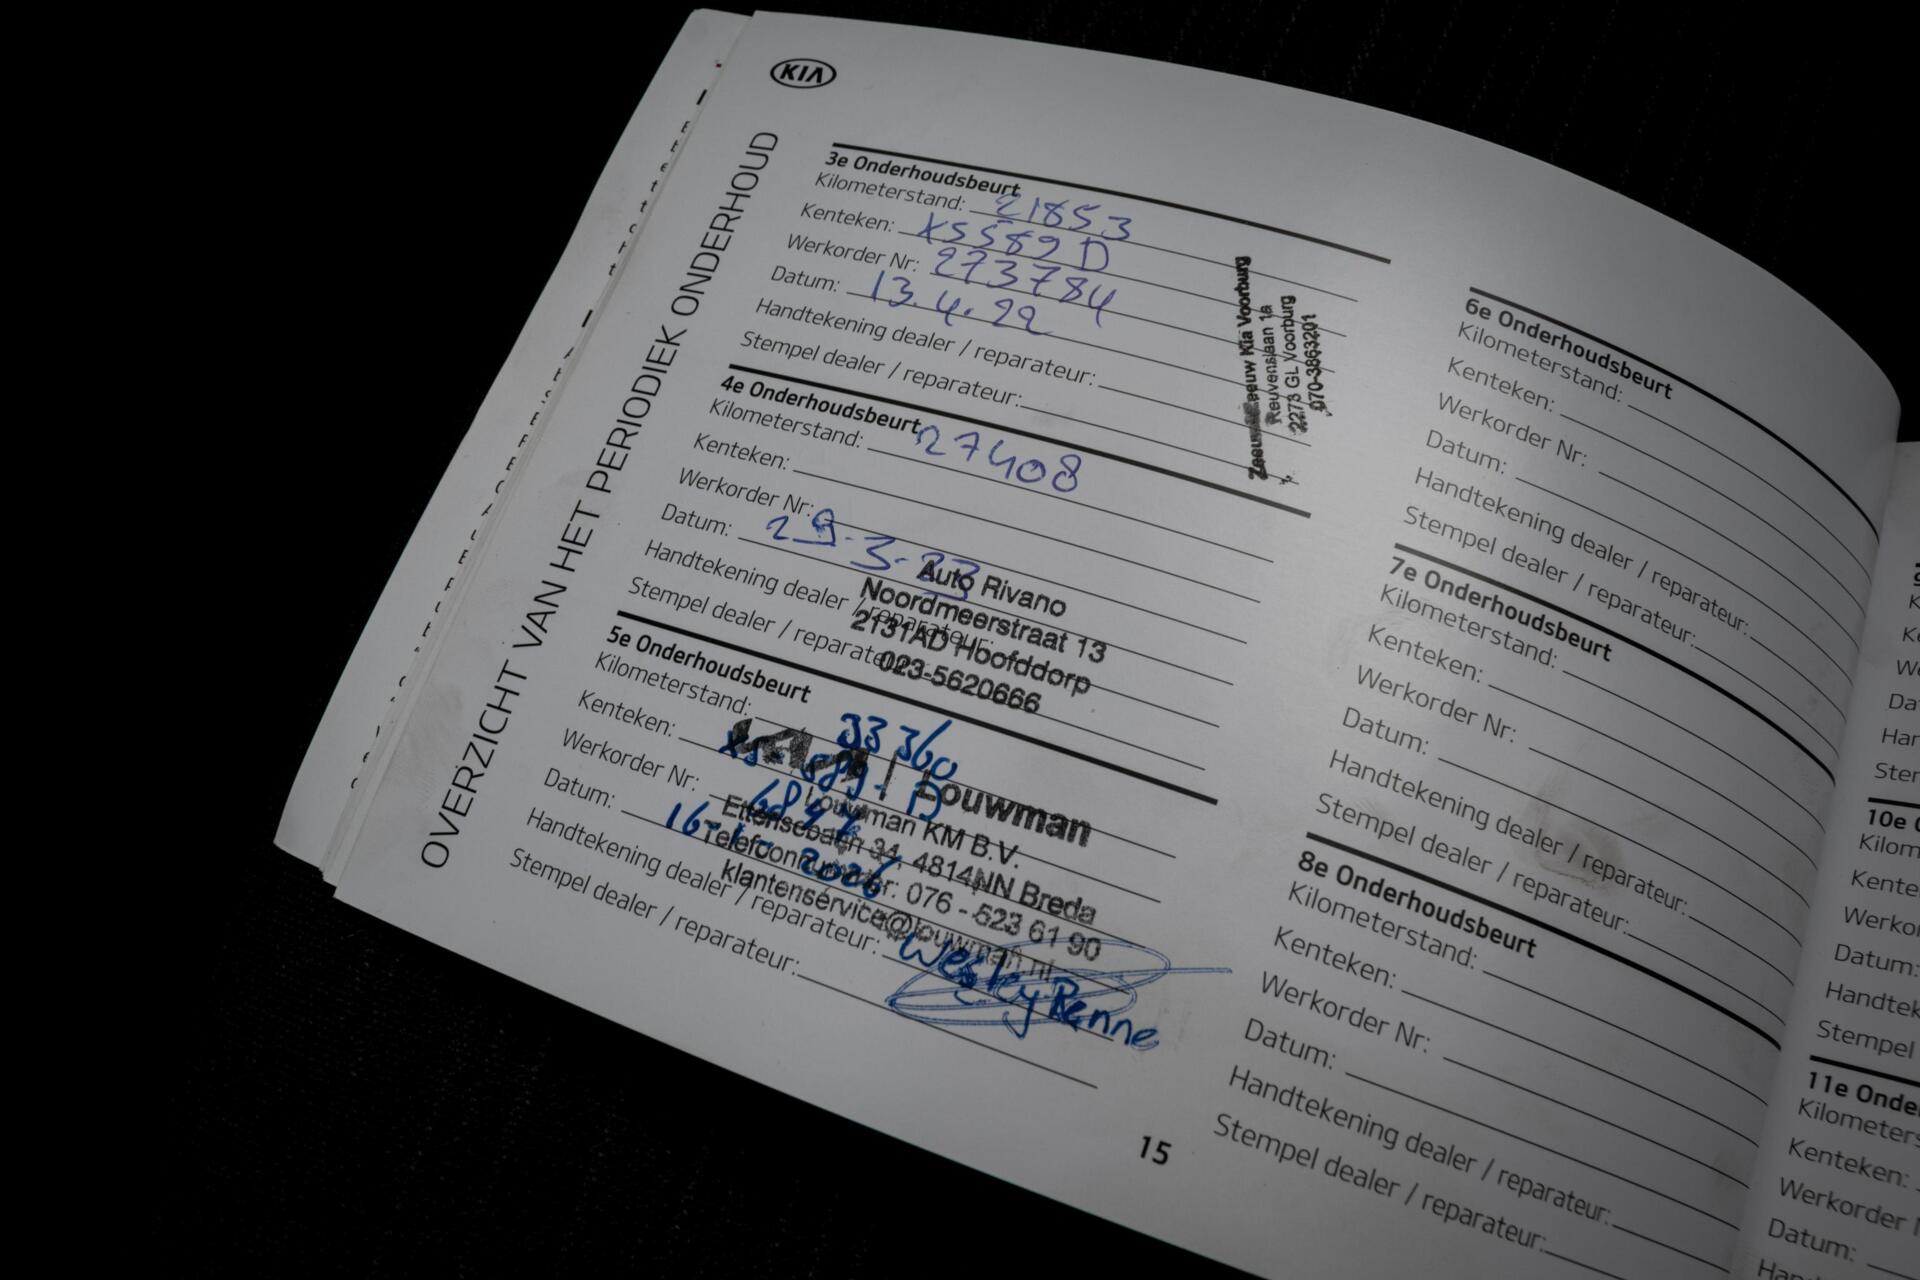 KIA
OVERZICHT VAN HET PERIODIEK ONDERHOUD
3e Onderhoudsbeurt
Kilometerstand: 21853
Kenteken: XS589D
Werkorder Nr: 273784
Datum: 13.4.22
Handtekening dealer / reparateur:
Stempel dealer / reparateur:
Kia Voorburg
Reuvenslaan 1a
2273 GL Voorburg
070-3863201
4e Onderhoudsbeurt
Kilometerstand: 27408
Kenteken:
Werkorder Nr:
Datum: 29-3-23
Handtekening dealer / reparateur:
Stempel dealer / reparateur:
Auto Rivano
Noordmeerstraat 13
2131AD Hoofddorp
023-5620666
5e Onderhoudsbeurt
Kilometerstand: 33360
Kenteken: XS-589-D
Werkorder Nr:
Datum: 16-1-2026
Handtekening dealer / reparateur: Wesley Renne
Stempel dealer / reparateur:
Louwman
Louwman KM B.V.
Ettensebaan 34, 4814NN Breda
Telefoonnummer: 076 - 523 61 90
klantenservice@louwman.nl
6e Onderhoudsbeurt
Kilometerstand:
Kenteken:
Werkorder Nr:
Datum:
Handtekening dealer / reparateur:
Stempel dealer / reparateur:
7e Onderhoudsbeurt
Kilometerstand:
Kenteken:
Werkorder Nr:
Datum:
Handtekening dealer / reparateur:
Stempel dealer / reparateur:
8e Onderhoudsbeurt
Kilometerstand:
Kenteken:
Werkorder Nr:
Datum:
Handtekening dealer / reparateur:
Stempel dealer / reparateur:
15
10e
Datum:
Stempel
11e
Kenteken:
Werkorder
Datum: